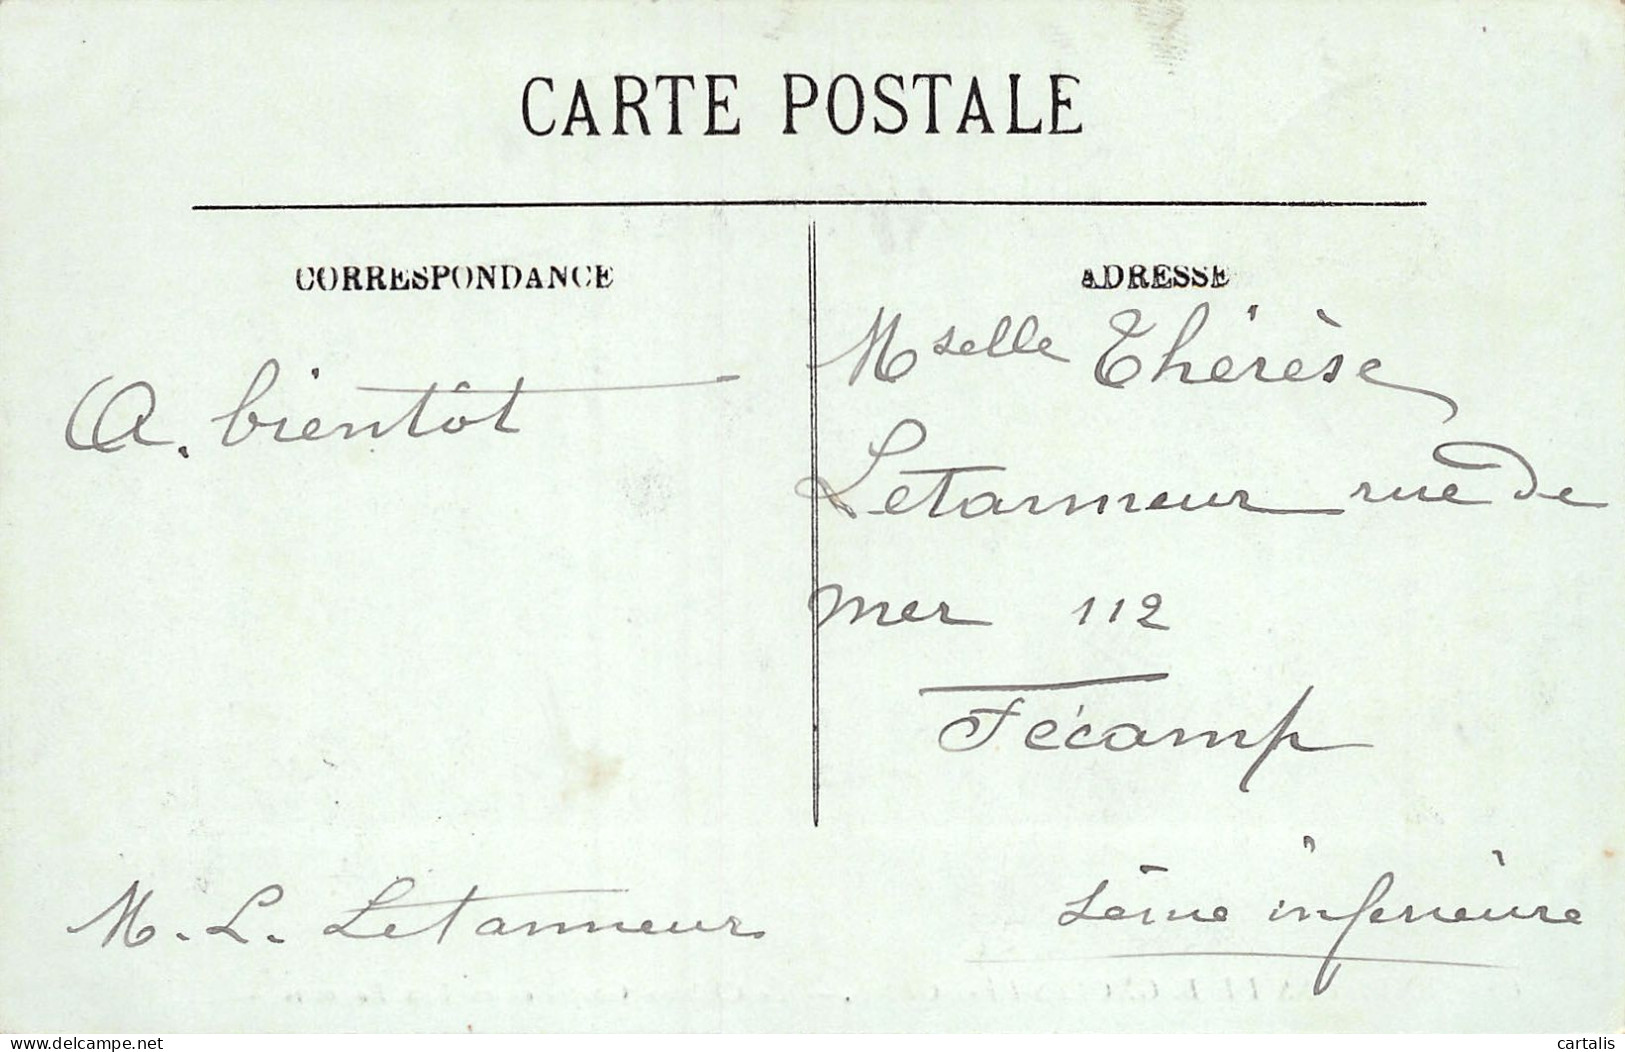 CARTE POSTALE
CORRESPONDANCE
A. bientôt
M. L. Letanneur
ADRESSE
Mselle Thérèse
Letanneur rue de
mer 112
Fécamp
Seine inférieure
www.delcampe.net
cartalis